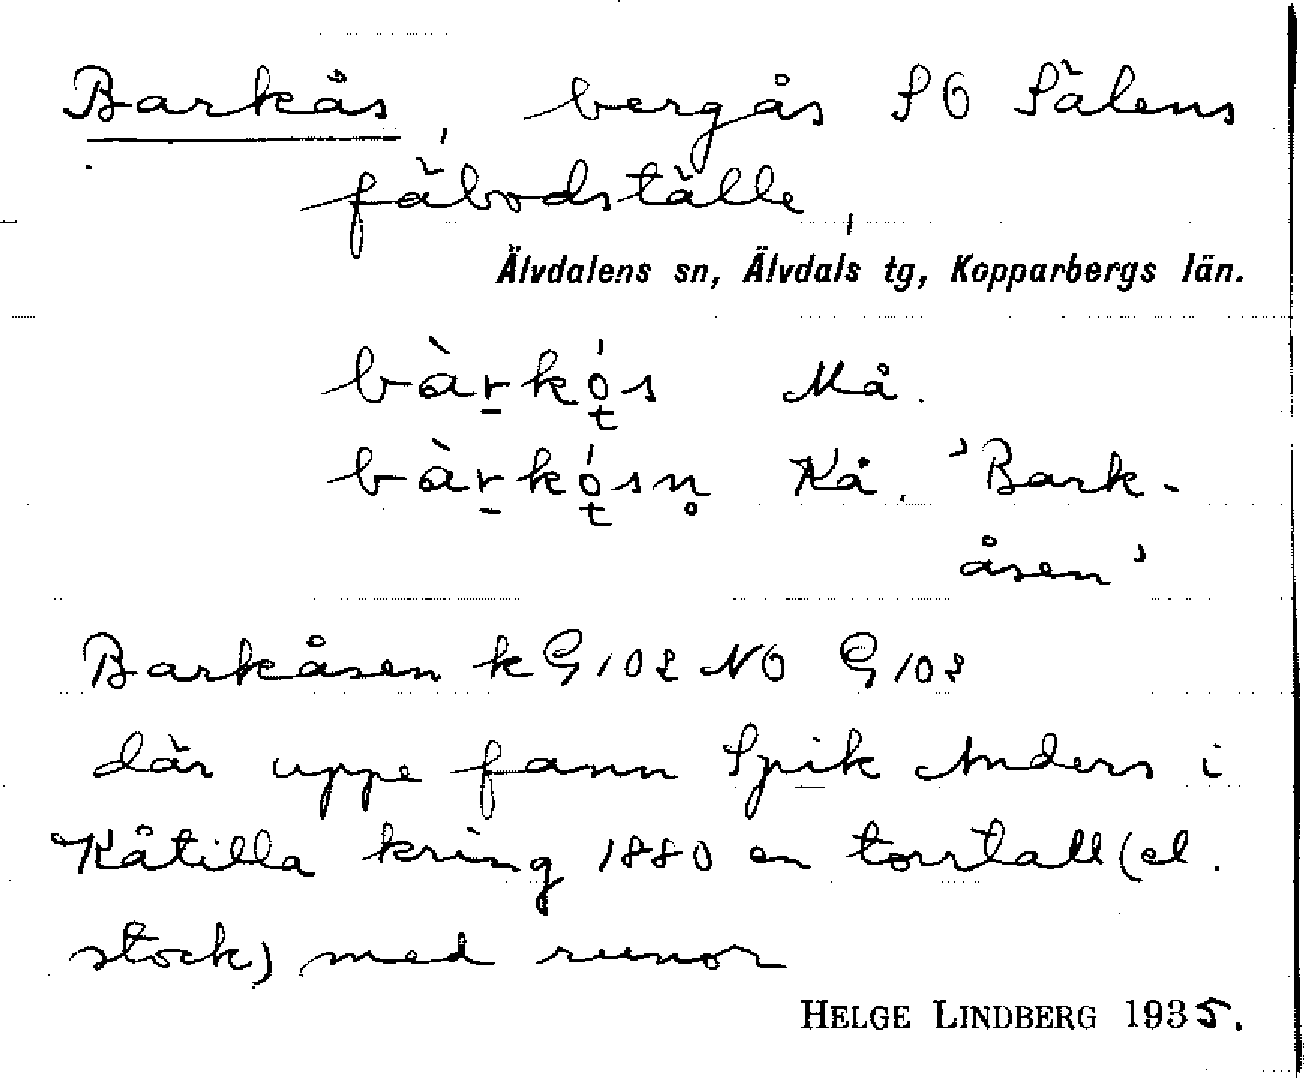 Barkås, bergås SO Sälens
fäbodställe,
Älvdalens sn, Älvdals tg, Kopparbergs län.
bàrkǫ́s Må.
bàrkǫ́sn̥ Kå. 'Bark-
åsen'
Barkåsen k G 102 NO G 103
där uppe fann Spik Anders i
Kåtilla kring 1880 en torrtall (el.
stock) med runor
HELGE LINDBERG 1935.